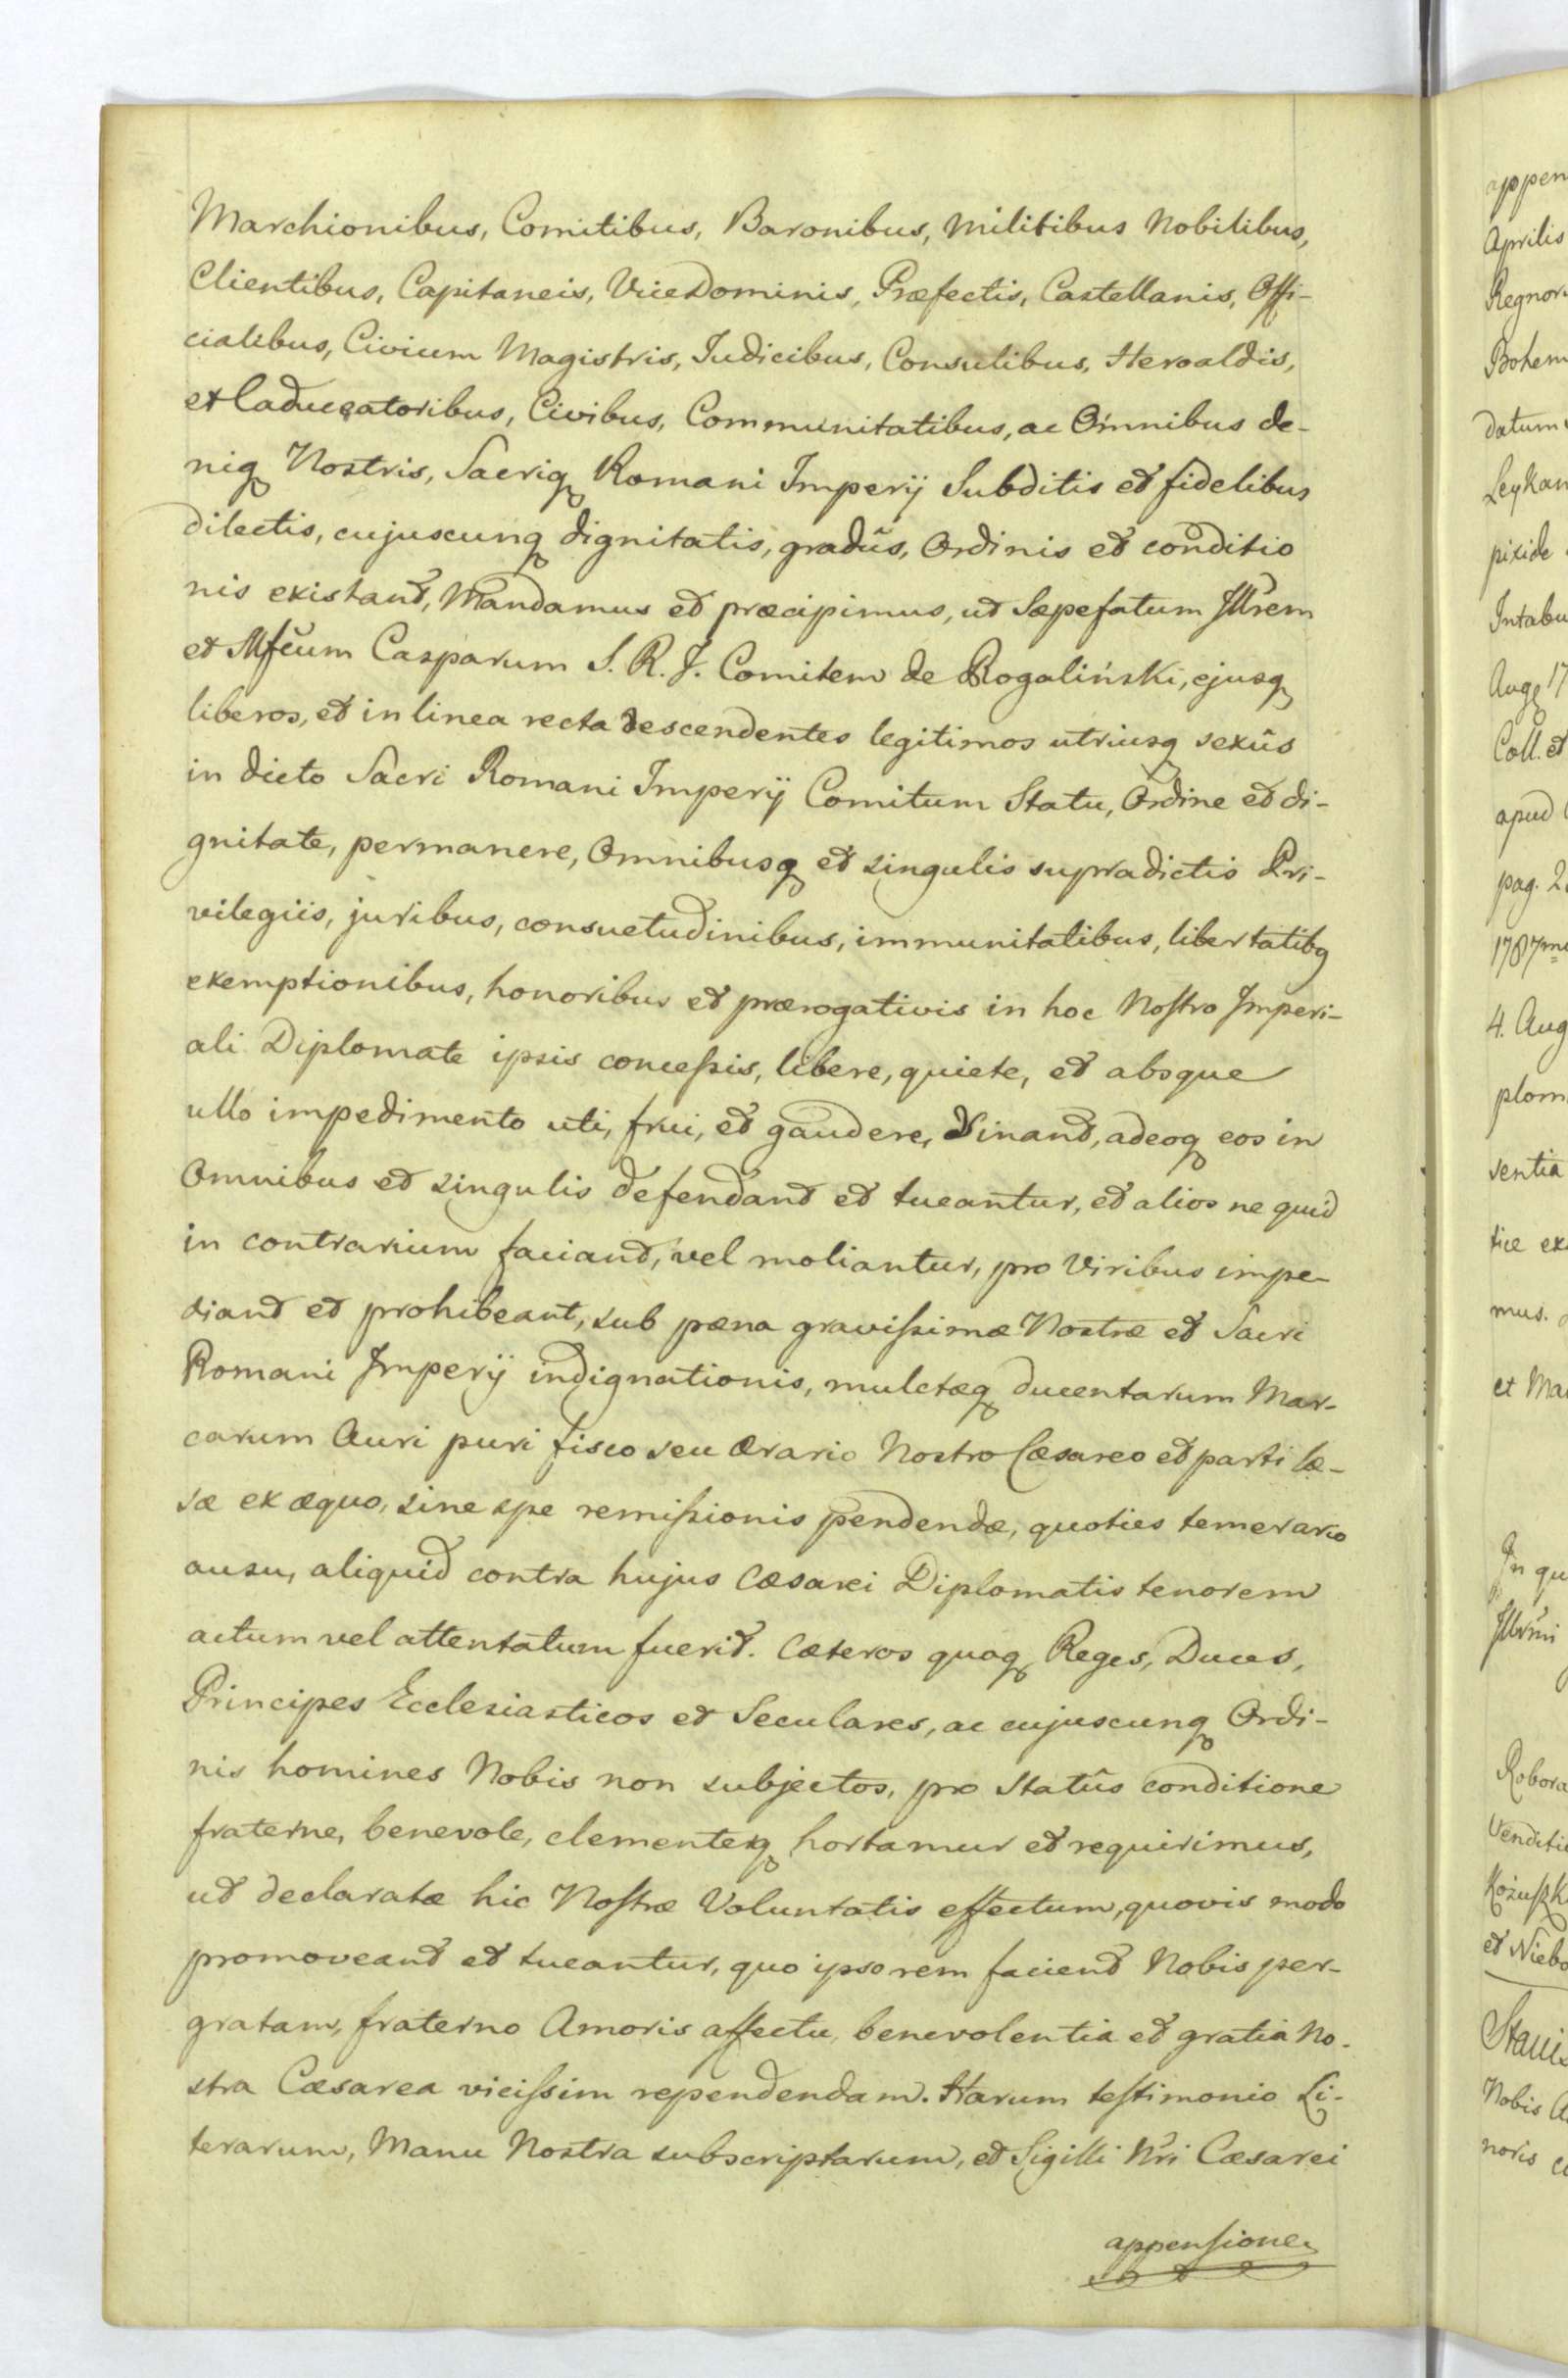 Marchionibus, Comitibus, Baronibus, Militibus Nobilibus,
Clientibus, Capitaneis, ViceDominis, Præfectis, Castellanis, Offi-
cialibus, Civium Magistris, Judicibus, Consulibus, Heroaldis,
et Caduceatoribus, Civibus, Communitatibus, ac Omnibus de-
niq Nostris, Sacriq Romani Imperij Subditis et fidelibus
dilectis, cujuscunq dignitatis, gradûs, Ordinis et conditio
nis existant, Mandamus et præcipimus, ut Sæpefatum Jllrem
et Mfcum Casparum S. R. J. Comitem de Rogaliński, ejusq
liberos, et in linea recta descendentes legitimos utriusq sexûs
in dicto Sacri Romani Imperij Comitum Statu, Ordine et di-
gnitate, permanere, Omnibusq et singulis supradictis Pri-
vilegiis, juribus, consuetudinibus, immunitatibus, libertatibq
exemptionibus, honoribus et prærogativis in hoc Nostro Imperi-
ali Diplomate ipsis concessis, libere, quiete, et absque
ullo impedimento uti, frui, et gaudere, Sinant, adeoq eos in
Omnibus et singulis defendant et tueantur, et alios ne quid
in contrarium faciant, vel moliantur, pro Viribus impe-
diant et prohibeant, sub pæna gravissimæ Nostræ et Sacri
Romani Imperij indignationis, mulctæq ducentarum Mar-
carum Auri puri fisco seu Ærario Nostro Cæsareo et parti læ-
sæ ex æquo, sine spe remissionis pendendæ, quoties temerario
ausu, aliquid contra hujus Cæsarei Diplomatis tenorem
actum vel attentatum fuerit. Cæteros quoq Reges, Duces,
Principes Ecclesiasticos et Seculares, ac cujuscunq Ordi-
nis homines Nobis non subjectos, pro Statûs conditione
fraterne, benevole, clementerq hortamur et requirimus,
ut declaratæ hic Nostræ Voluntatis effectum, quovis modo
promoveant et tueantur, quo ipso rem facient Nobis per-
gratam, fraterno Amoris affectu, benevolentia et gratia No-
stra Cæsarea vicissim rependendam. Harum testimonio Li-
terarum, Manu Nostra subscriptarum, et Sigilli Nri Cæsarei
appensione
appen
Aprilis
Regnor
Bohem
datum
Leykam
pixide
Intabu
Augq 17
Coll. et
apud
pag. 2
1787mo
4. Aug
plom
sentia
tice ex
mus.
et Ma
In qu
Jllrmi
Robora
Venditi
Kożuszk
et Niebo
Stani
Nobis A
noris c